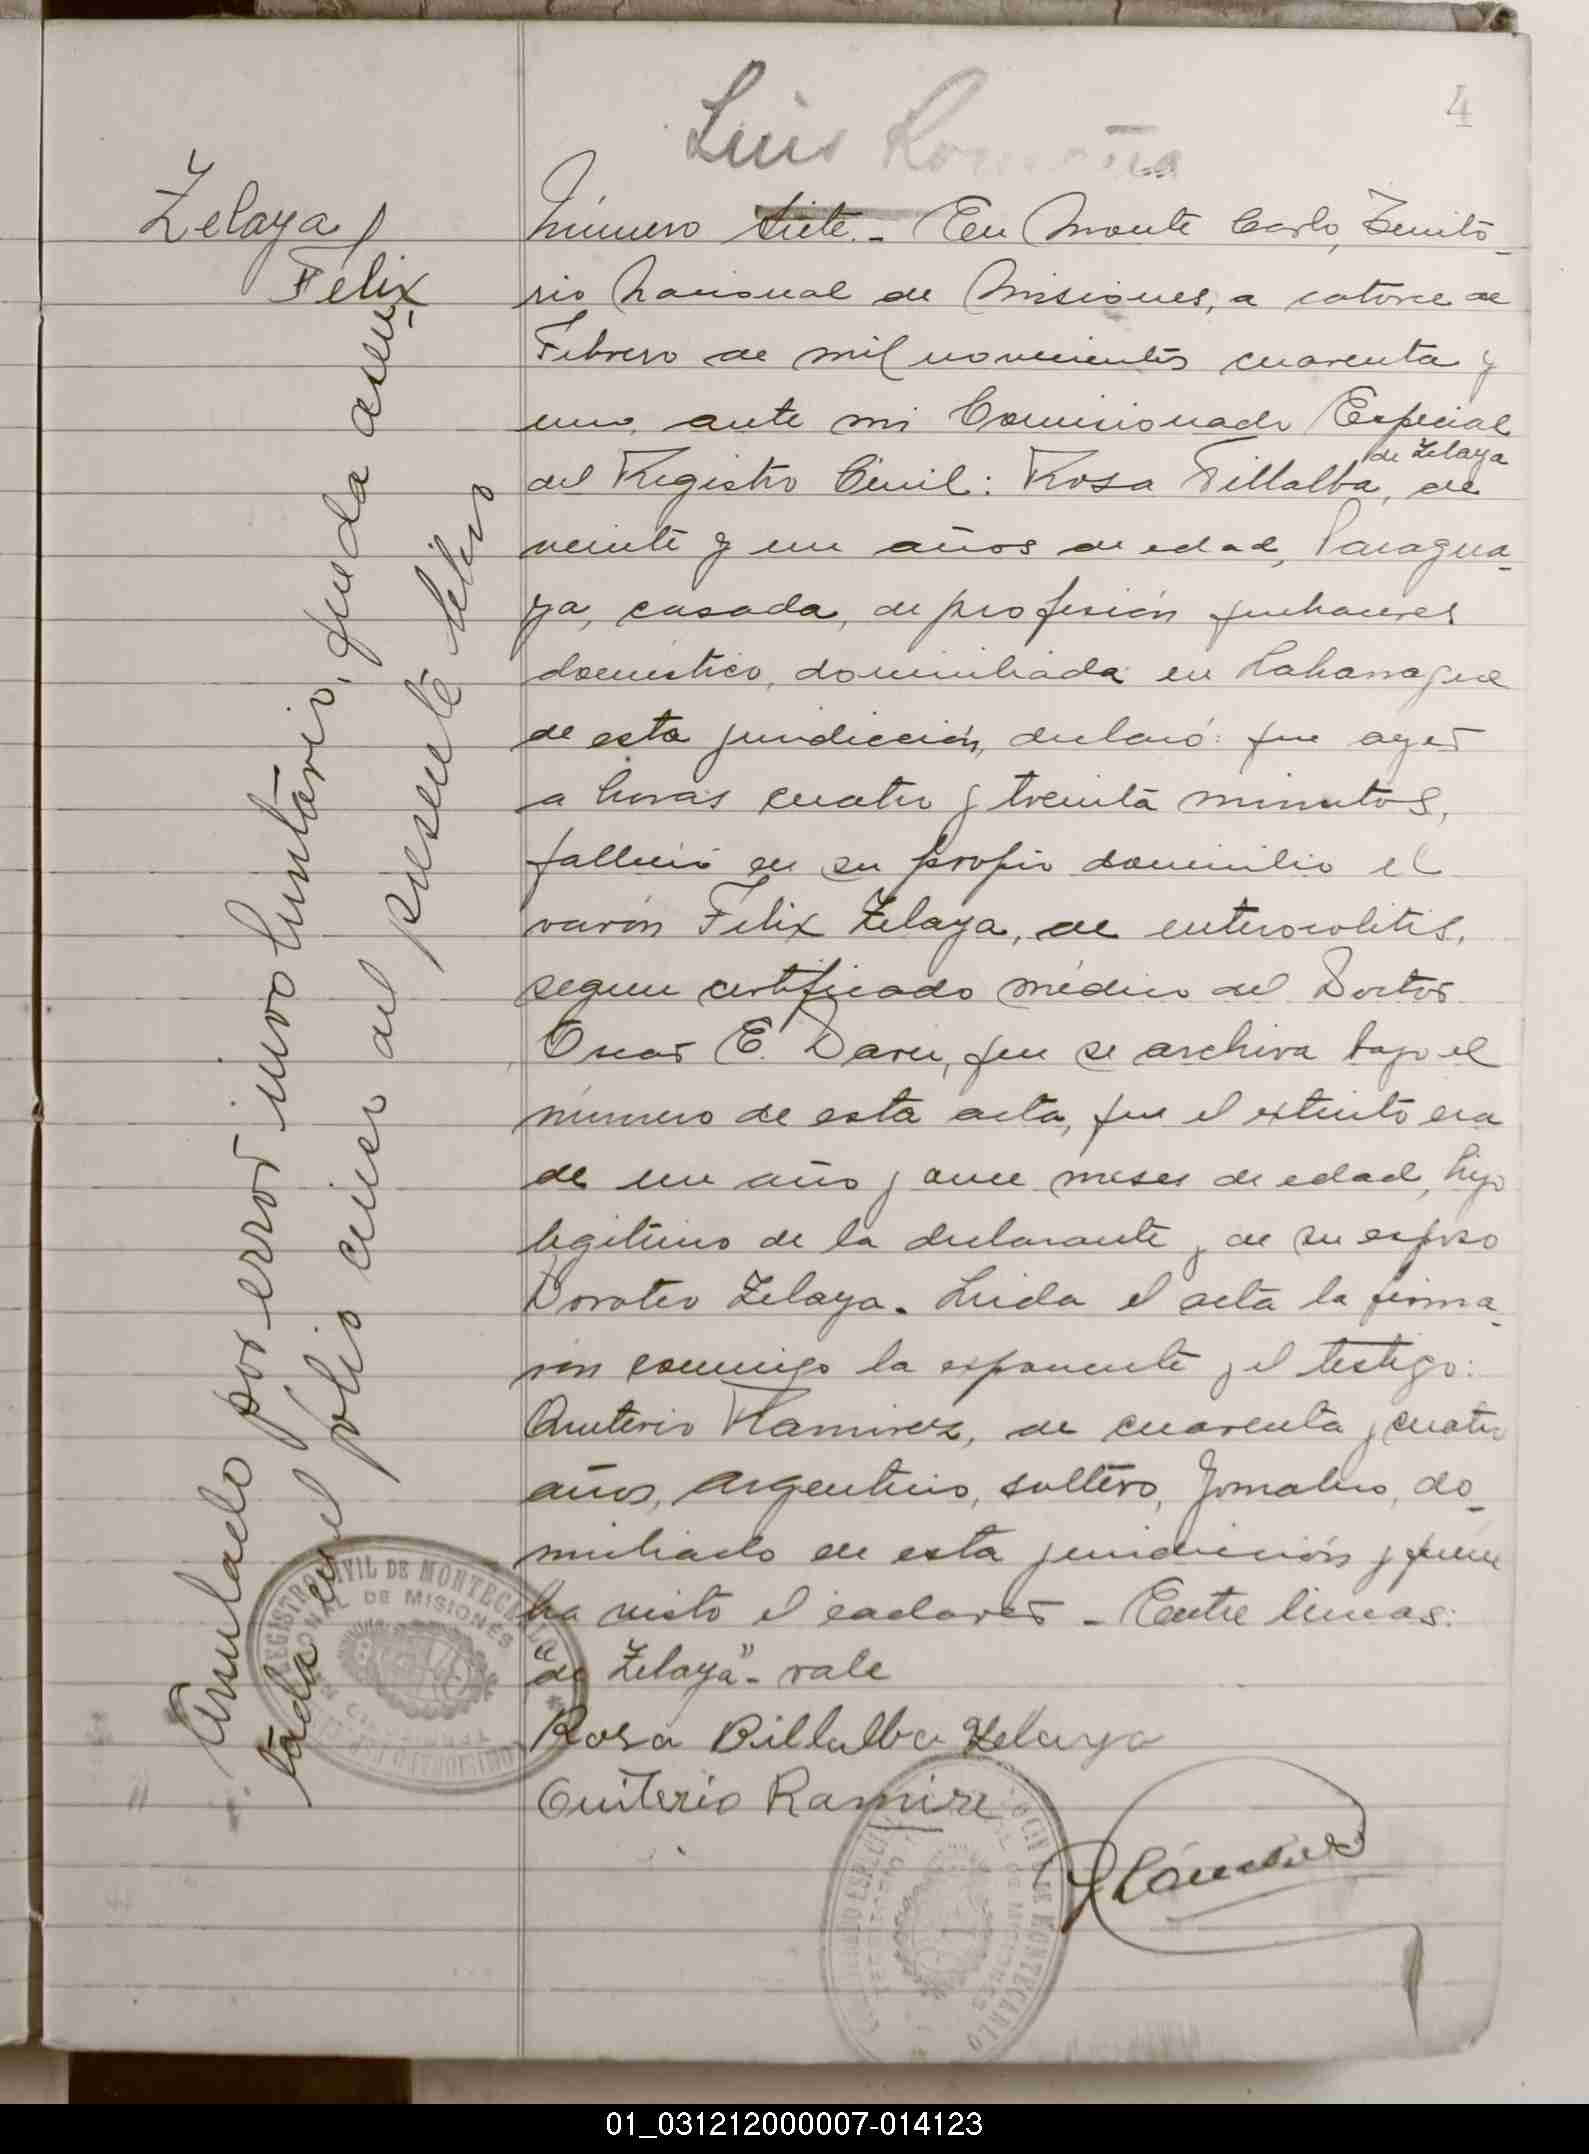 4
Luis
Zelaya
Félix
Número siete.- En Monte Carlo, Territo-
rio Nacional de Misiones, a catorce de
Febrero de mil novecientos cuarenta y
uno, ante mi Comisionado Especial
del Registro Civil: Rosa Villalba, de Zelaya de
veinte y un años de edad, Paragua-
ya, casada, de profesión quehaceres
doméstico, domiciliada en
de esta juridicción, declaró: que ayer
a horas cuatro y treinta minutos,
falleció en su propio domicilio el
varón Felix Zelaya, de enterocolitis,
segun certificado médico del Doctor
Oscar E. Daru, que se archiva bajo el
número de esta acta, que el extinto era
de un año y once meses de edad, hijo
legitimo de la declarante y de su esposo
Doroteo Zelaya. Leida el acta la firma-
ron conmigo la exponente y el testigo:
Quiterio Ramirez, de cuarenta y cuatro
años, argentino, soltero, Jornalero, do-
miciliado en esta juridicción y quien
ha visto el cadaver - Entre lineas:
"de Zelaya"- vale
Rosa Billalba Zelaya
Quiterio Ramire
Anulado por error involuntário, queda asen-
tada en el folio cinco del presente libro
REGISTRO CIVIL DE MONTECARLO
NACIONAL DE MISIONES
DE MONTECARLO
DE MISIONES
01_031212000007-014123